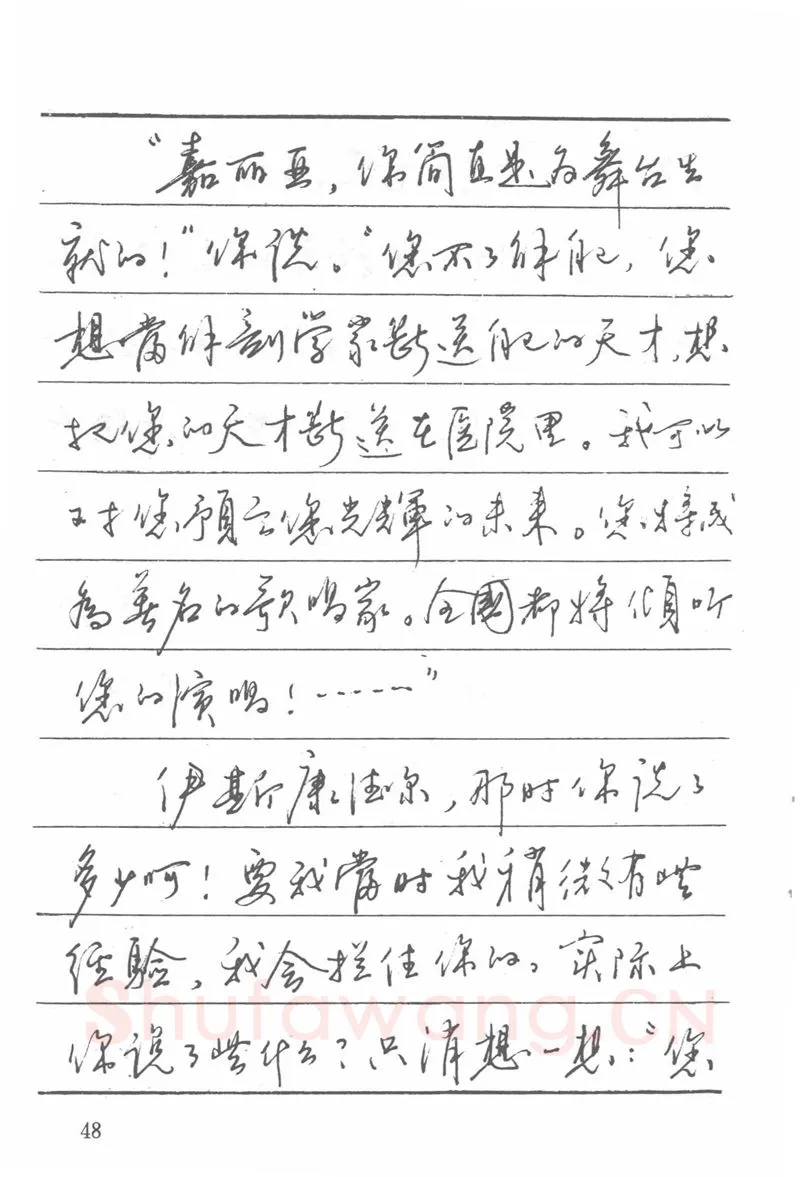 “嘉丽亚，你简直是为舞台生
就的！”你说。“您不了解自己，您
想當解剖学家断送自己的天才，想
把您的天才断送在医院里。我可以
对您預言您光輝的未来。您将成
為著名的歌唱家。全國都将傾听
您的演唱！……”
伊斯康德尔，那时你说了
多少呵！要我當时我稍微有些
经验，我会拦住你的，实际上
你说了些什么？只消想一想：“您
Shufawang.CN
48